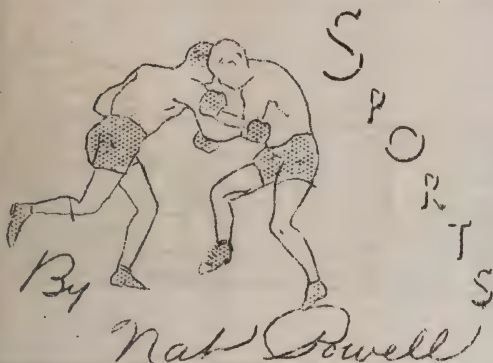 SPORTS
By
Nat Powell